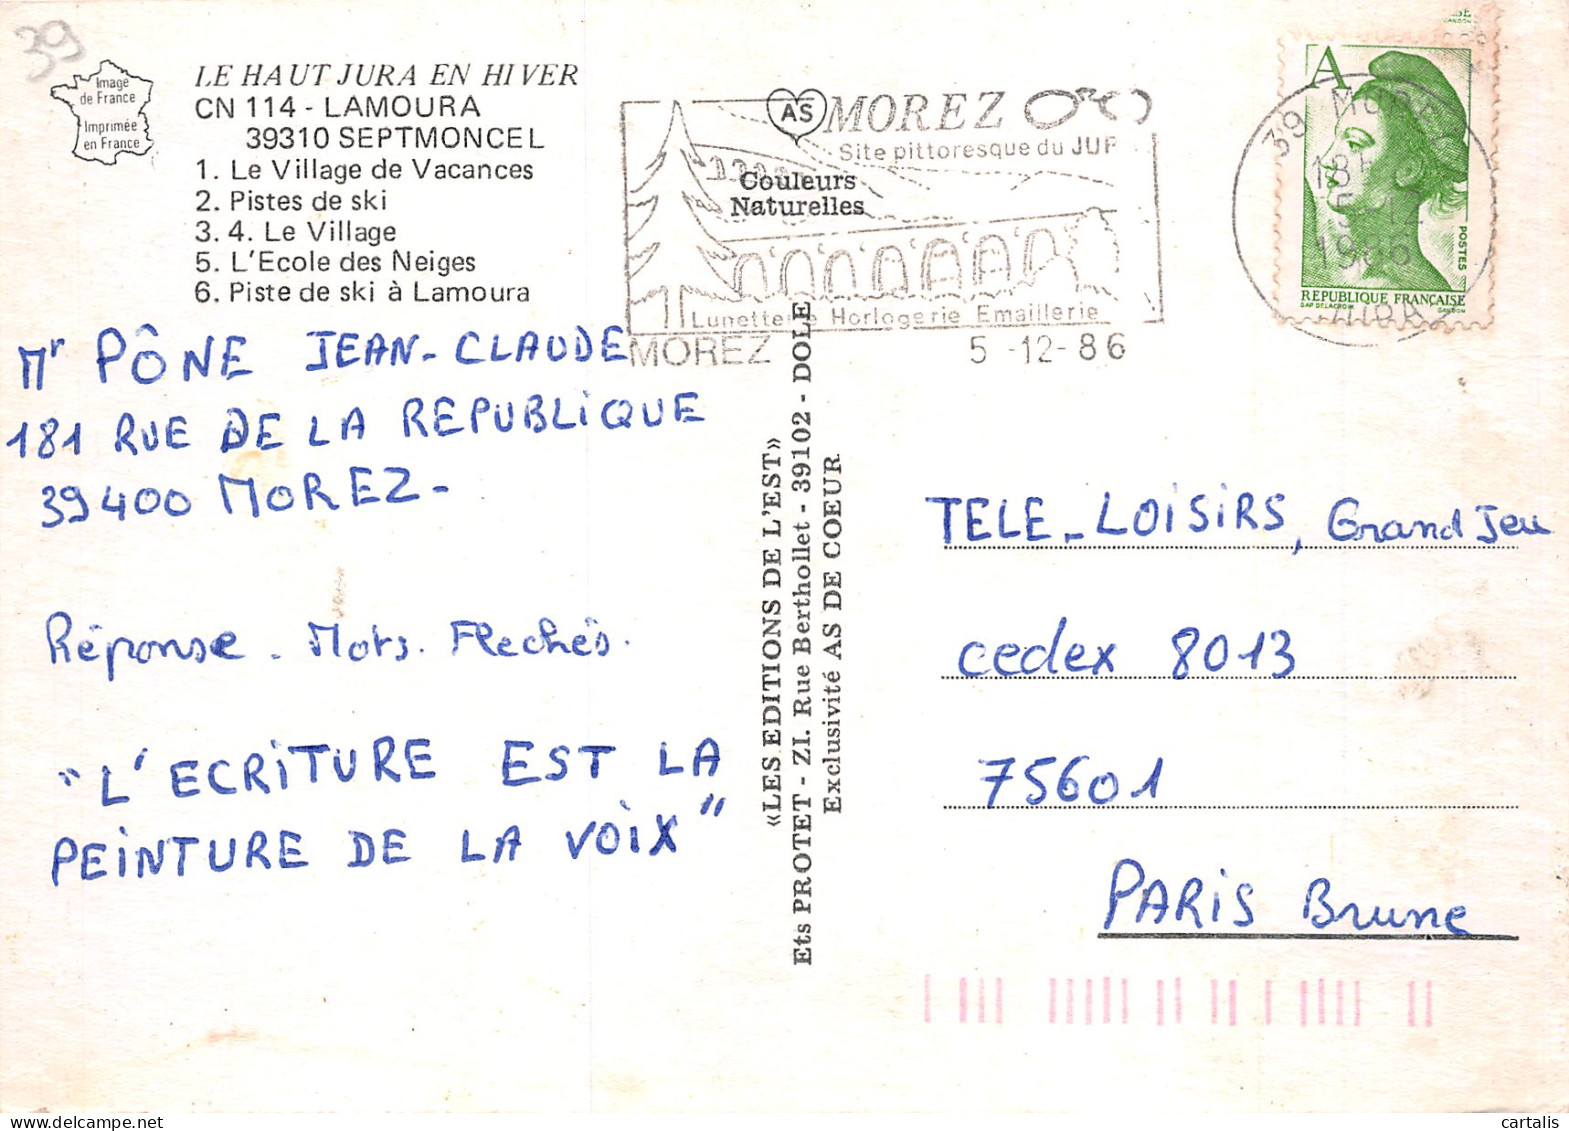 39
Image
de France
Imprimée
en France
LE HAUT JURA EN HIVER
CN 114 - LAMOURA
39310 SEPTMONCEL
1. Le Village de Vacances
2. Pistes de ski
3. 4. Le Village
5. L'Ecole des Neiges
6. Piste de ski à Lamoura
AS
MOREZ
Site pittoresque du JUR
Couleurs
Naturelles
Lunetterie Horlogerie Emaillerie
MOREZ 5 -12- 86
A
POSTES
REPUBLIQUE FRANÇAISE
39 MOREZ
18H
5-12
1986
JURA
Mr PÔNE JEAN-CLAUDE
181 RUE DE LA REPUBLIQUE
39400 MOREZ-
Réponse. Mots. Flechés.
"L'ECRITURE EST LA
PEINTURE DE LA VOIX"
«LES EDITIONS DE L'EST»
Ets PROTET - ZI. Rue Berthollet - 39102 - DOLE
Exclusivité AS DE COEUR
TELE-LOISIRS, Grand Jeu
cedex 8013
75601
PARIS Brune
cartalis